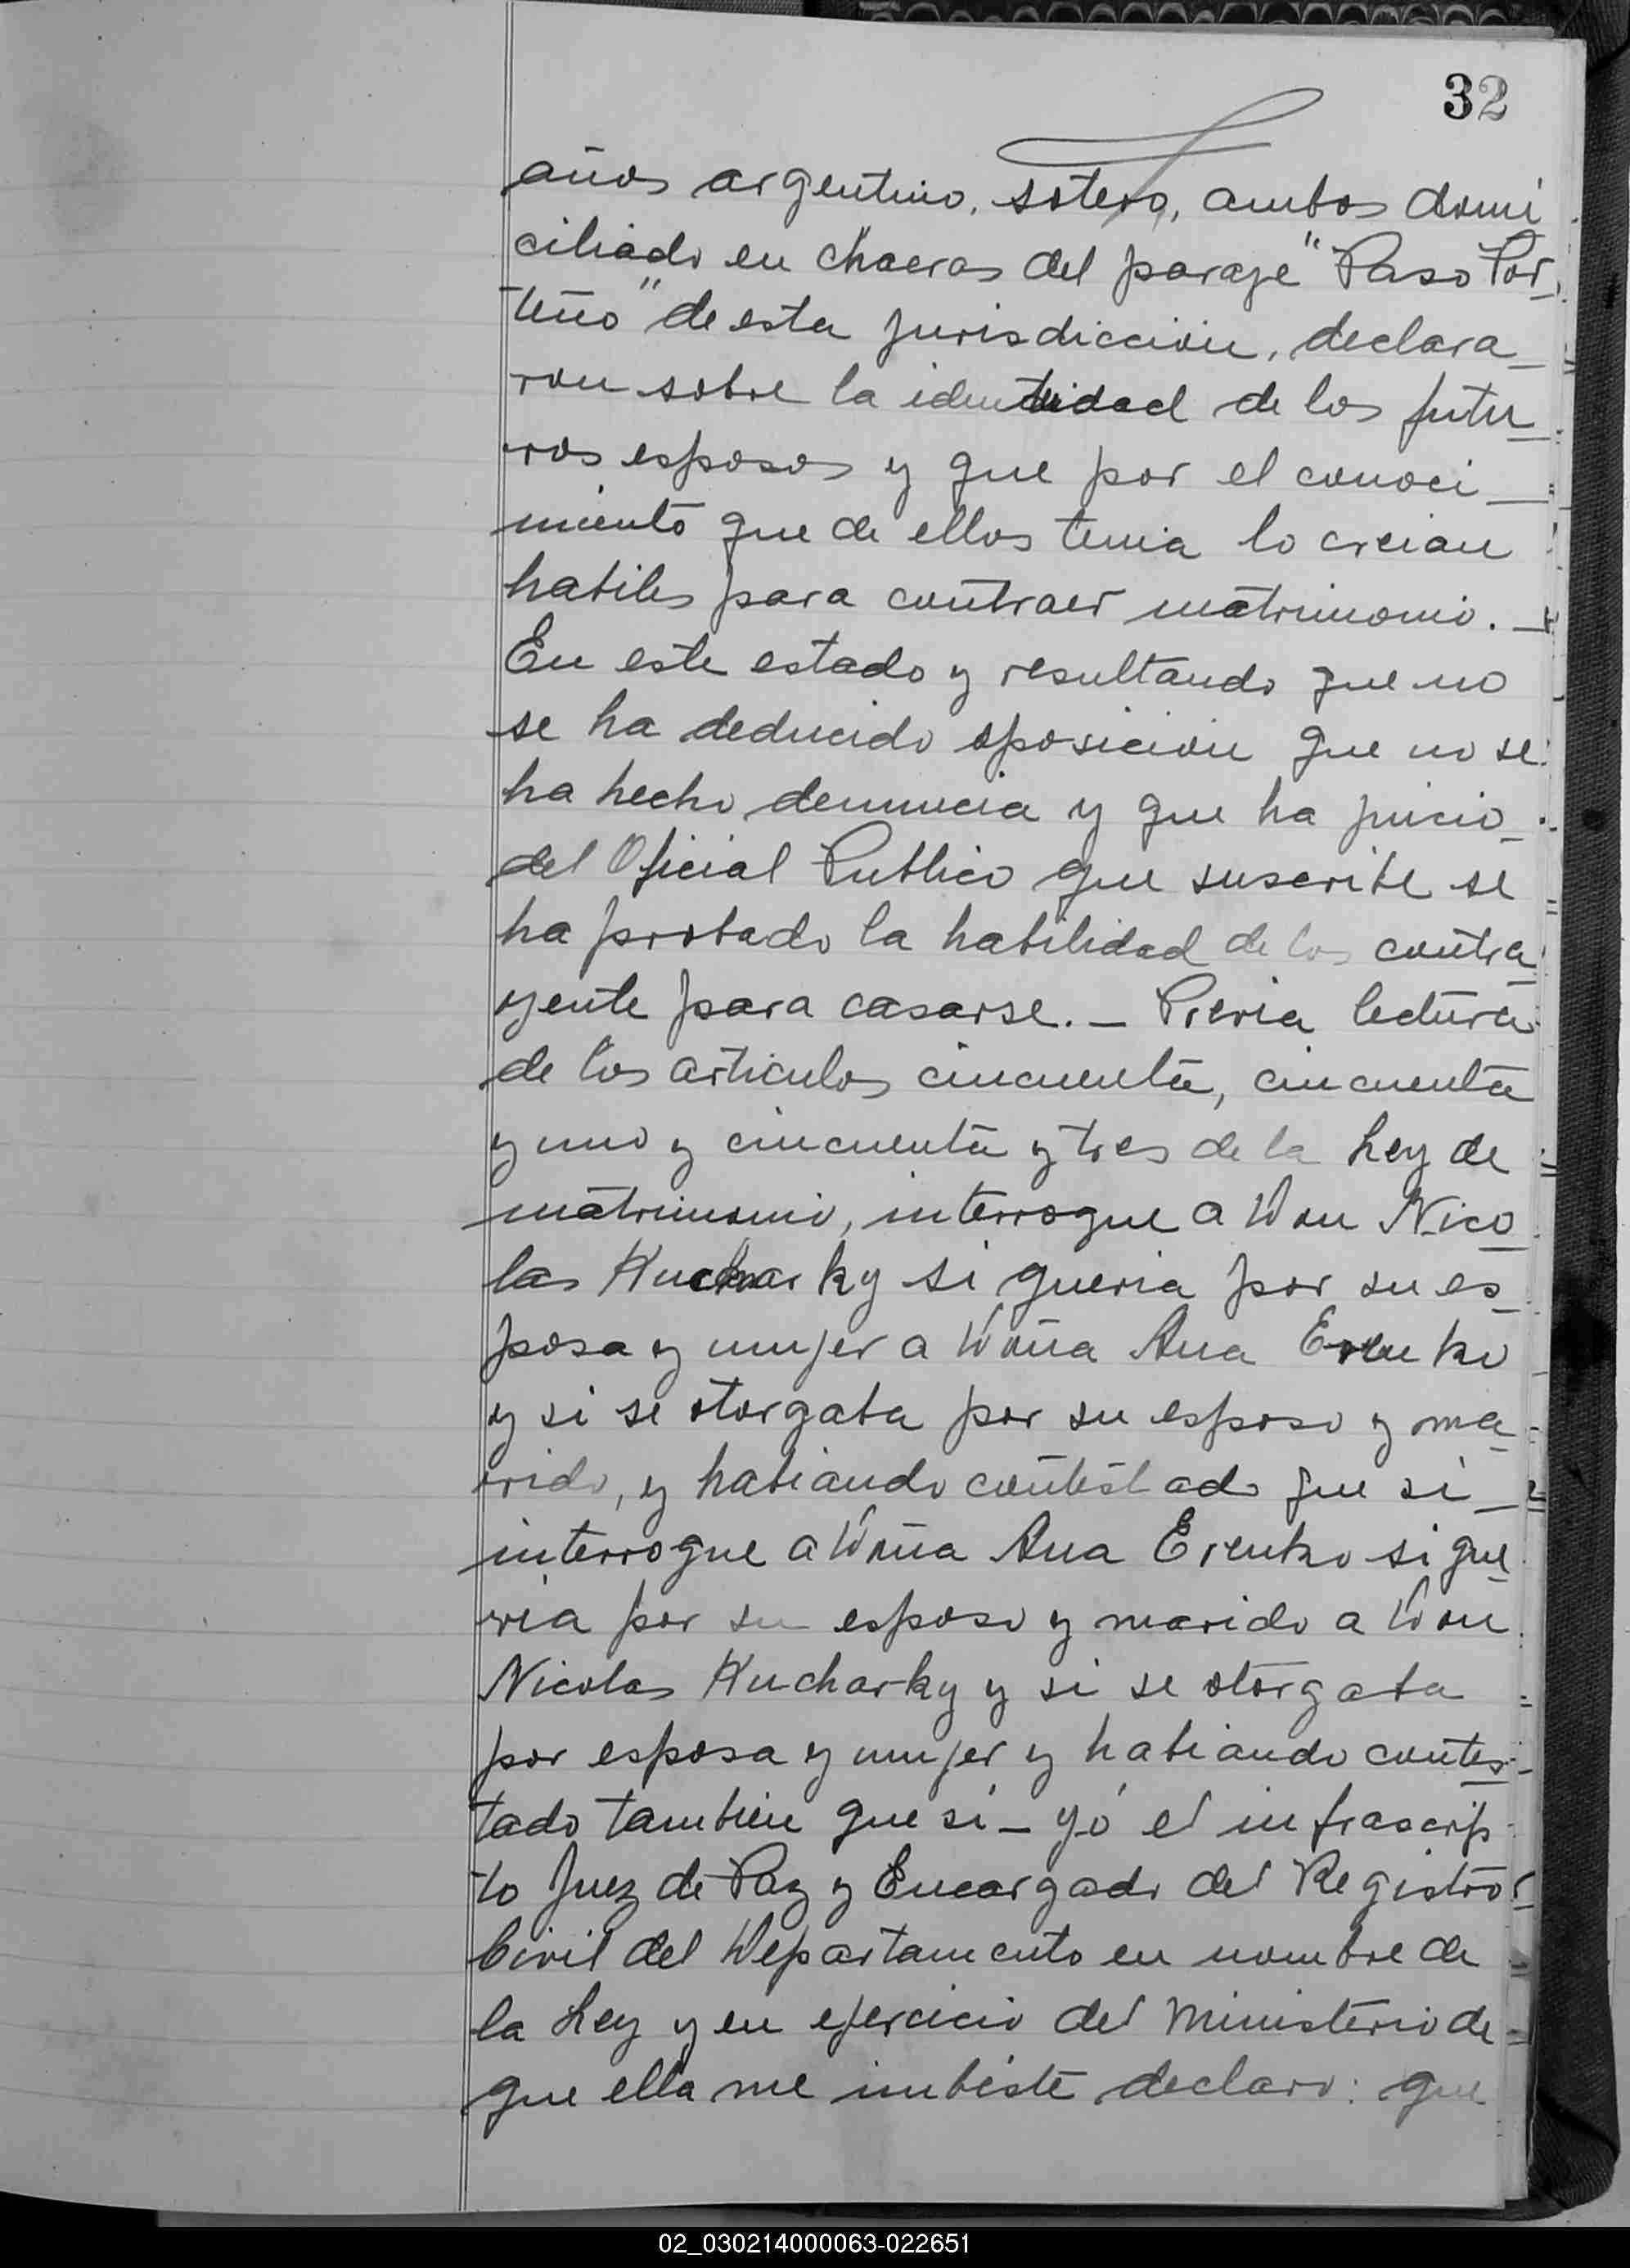 32
años argentino, sotero, ambos domi
ciliado en chacras del paraje "Paso Por_
teño" de esta jurisdiccion, declara_
ron sobre la identidad de los futu_
ros esposos y que por el conoci_
miento que de ellos tenia lo creian
habiles para contraer matrimonio._
En este estado y resultando que no
se ha deducido oposicion que no se
ha hecho denuncia y que ha juicio_
del Oficial Publico que suscribe se
ha probado la habilidad de los contra
yente para casarse._ Previa lectura
de los articulos cincuenta, cincuenta
y uno y cincuenta y tres de la Ley de
matrimonio, interrogue a Don Nico_
las Kucharky si queria por su es_
posa y mujer a Doña Ana Erenko
y si se otorgaba por su esposo y ma_
rido, y habiando contestado que si_
interrogue a Doña Ana Erenko si que_
ria por su esposo y marido a Don
Nicolas Kucharky y si se otorgaba
por esposa y mujer y habiando contes_
tado tambien que si_ yó el infrascrip
to Juez de Paz y Encargado del Registro
Civil del Departamento en nombre de
la Ley y en ejercicio del Ministerio de
que ella me imbiste declaro: que
02_030214000063-022651